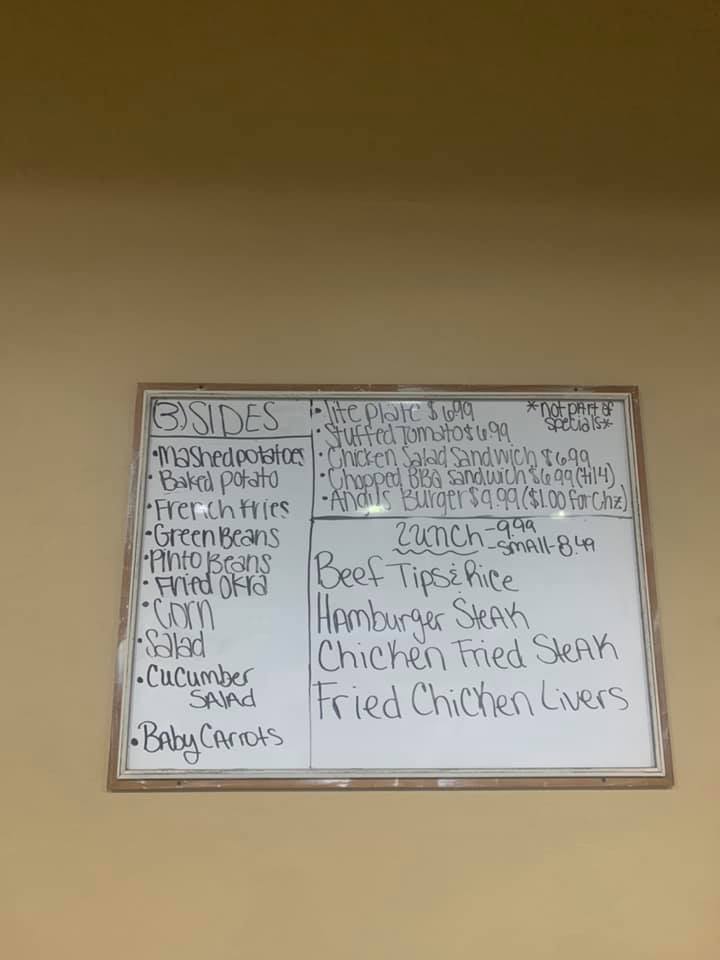 (3) SIDES
• Mashed potatoes
• Baked potato
• French Fries
• Green Beans
• Pinto Beans
• Fried Okra
• Corn
• Salad
• Cucumber
Salad
• Baby Carrots
• lite plate $6.99
• Stuffed Tomato $6.99
• Chicken Salad Sandwich $6.99
• Chopped BBQ Sandwich $6.99 (til 4)
• Andy's Burger $9.99 ($1.00 for chz)
*not part of
specials*
Lunch - 9.99
- small - 8.49
Beef Tips & Rice
Hamburger Steak
Chicken Fried Steak
Fried Chicken Livers